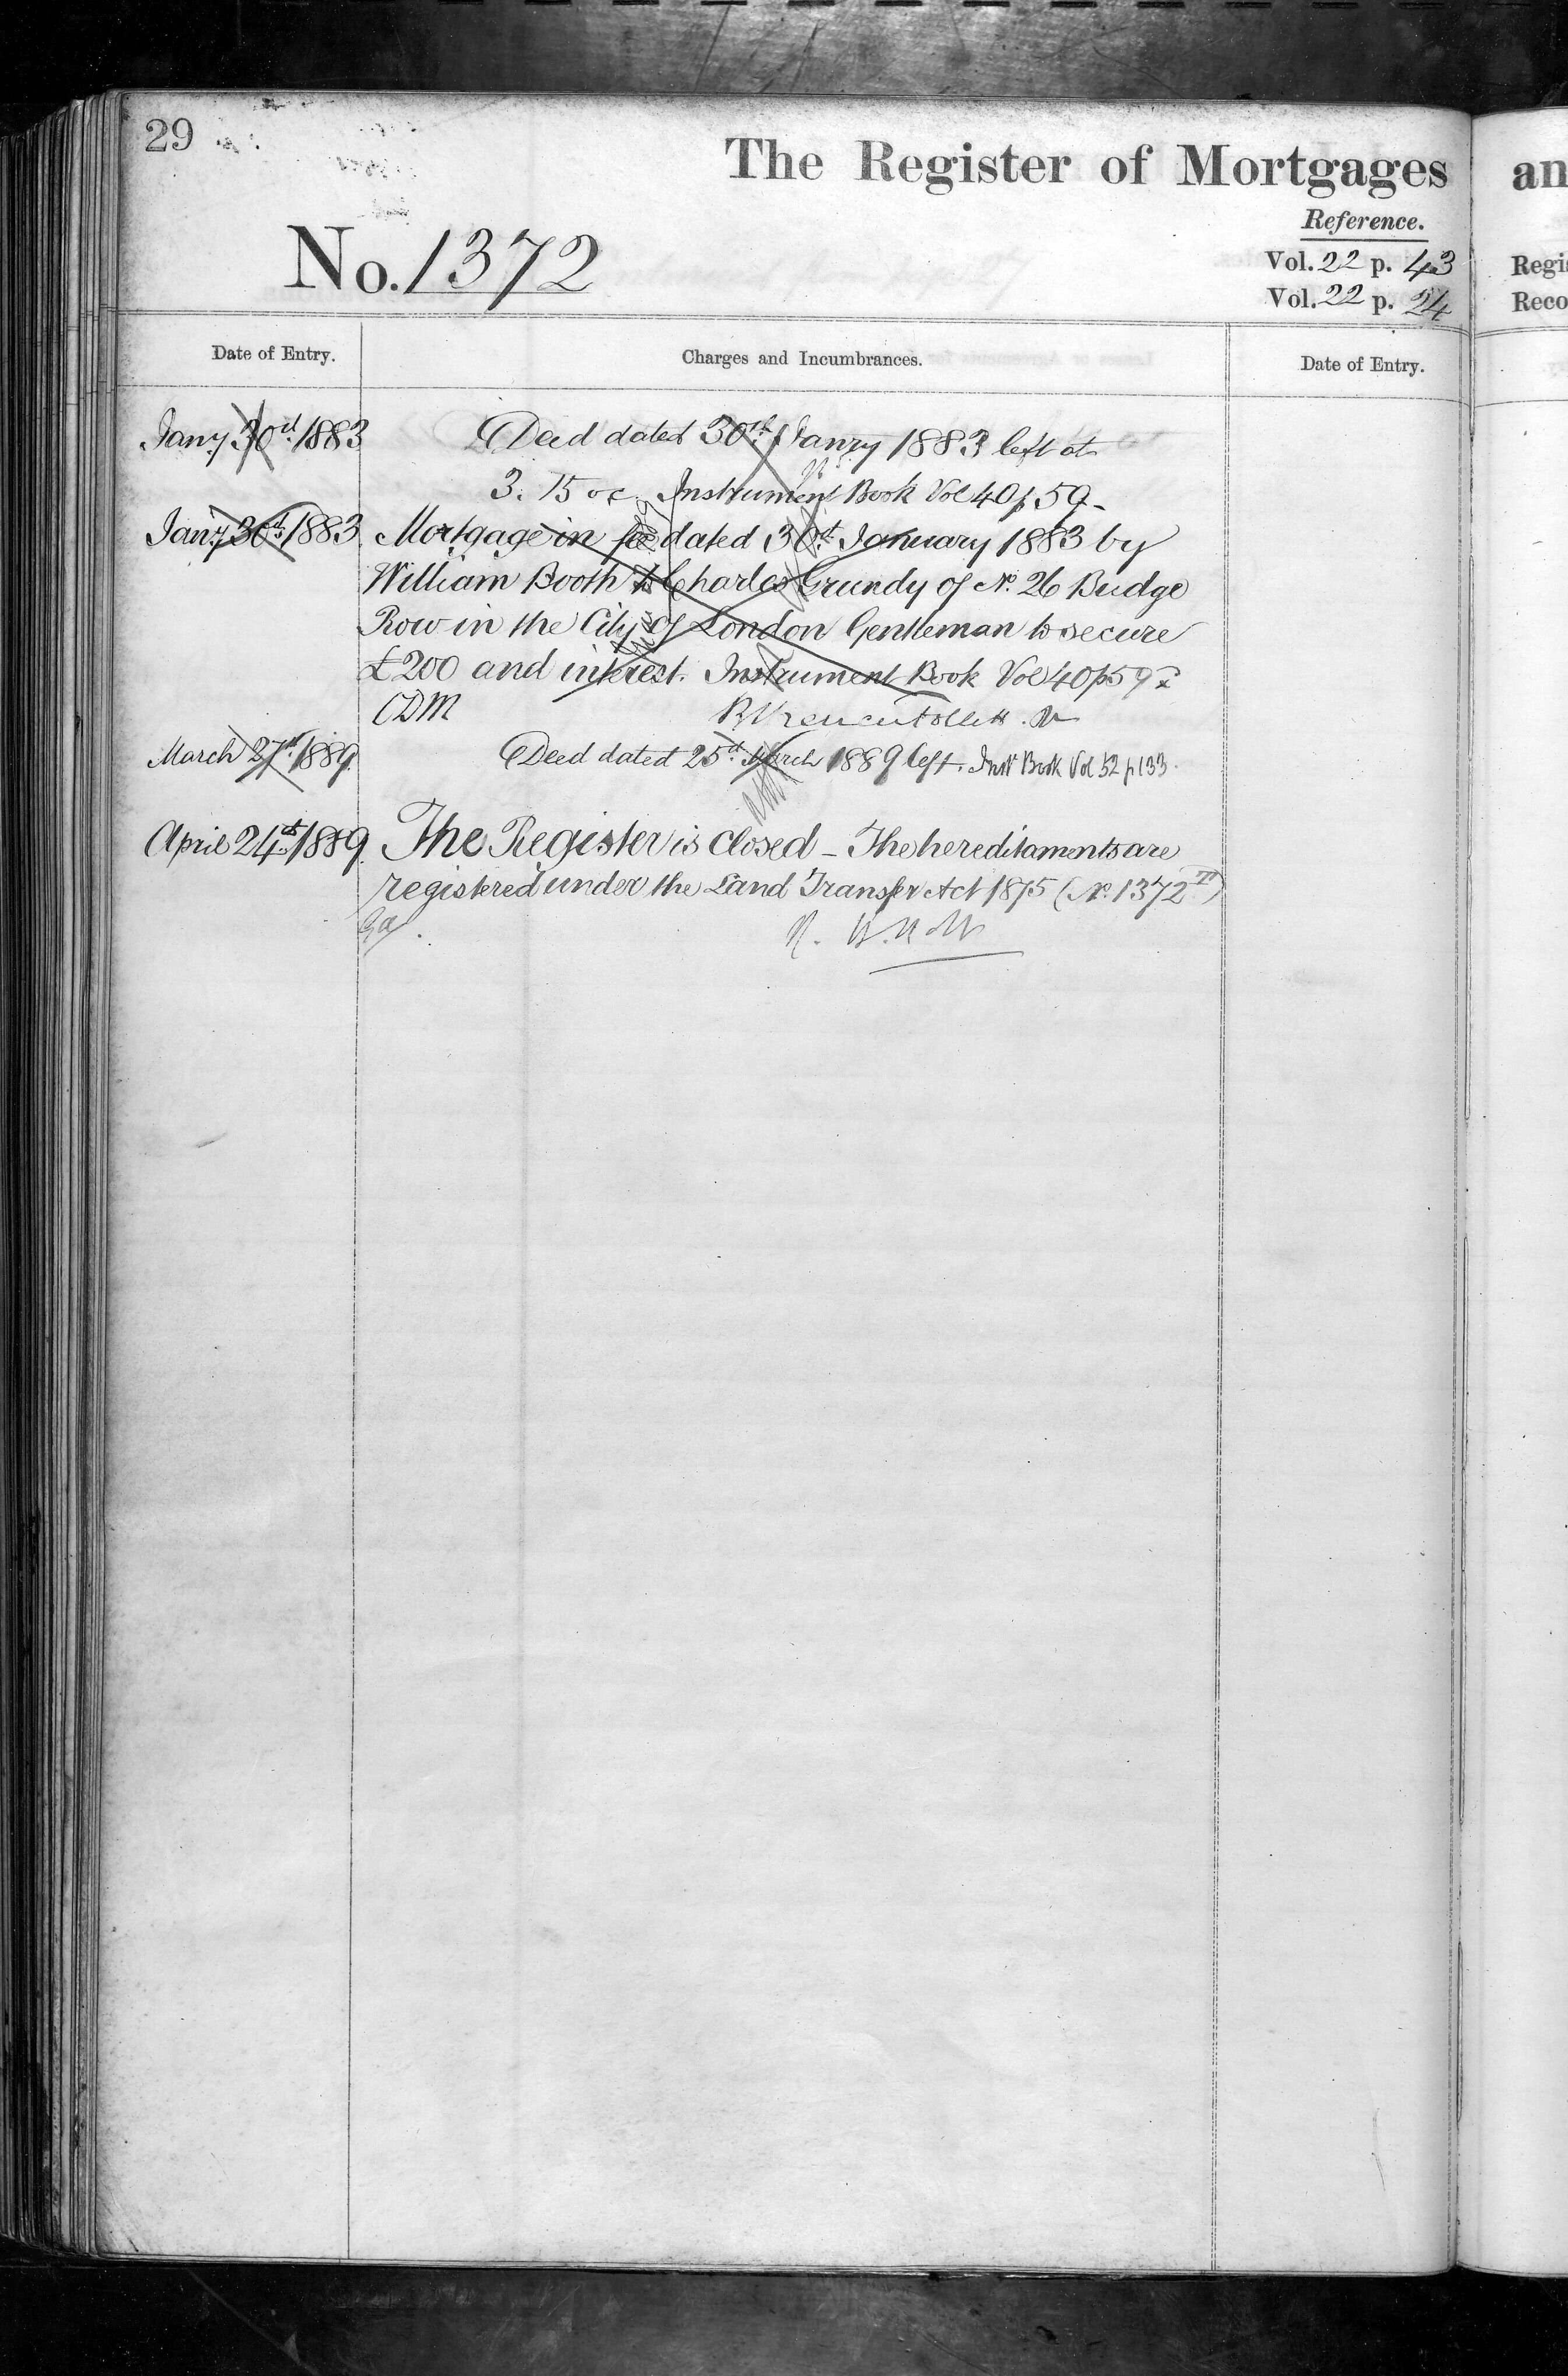 29
The Register of Mortgages
Reference.
No. 1372
Vol. 22 p. 43
Vol. 22 p. 24
Date of Entry.
Charges and Incumbrances.
Date of Entry.
Jany 30th 1883
Deed dated 30th Janry 1883 left at
3. 15 oc. Instrument Book Vol 40 p 59 -
Jany 30th 1883
Mortgage in fee dated 30th January 1883 by
William Booth to Charles Grundy of No. 26 Budge
Row in the City of London Gentleman to secure
£200 and interest. Instrument Book Vol 40 p 59
CDM
March 27th 1889
Deed dated 25th March 1889 left. Inst Book Vol 52 p 133.
April 24th 1889
The Register is closed - The hereditaments are
registered under the Land Transfer Act 1875 (No. 1372
an
Regi
Reco